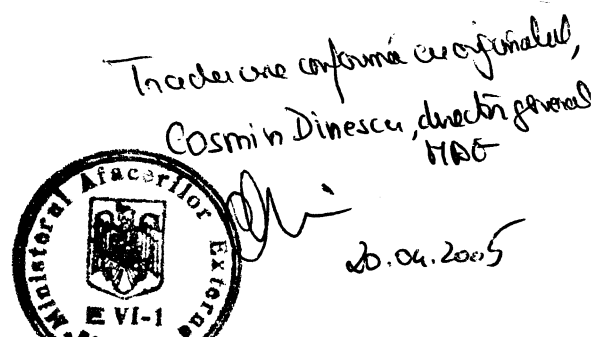 Traducere conformă cu originalul,
Cosmin Dinescu, director general
MAE
20.04.2005
Ministerul Afacerilor Externe
E VI-1